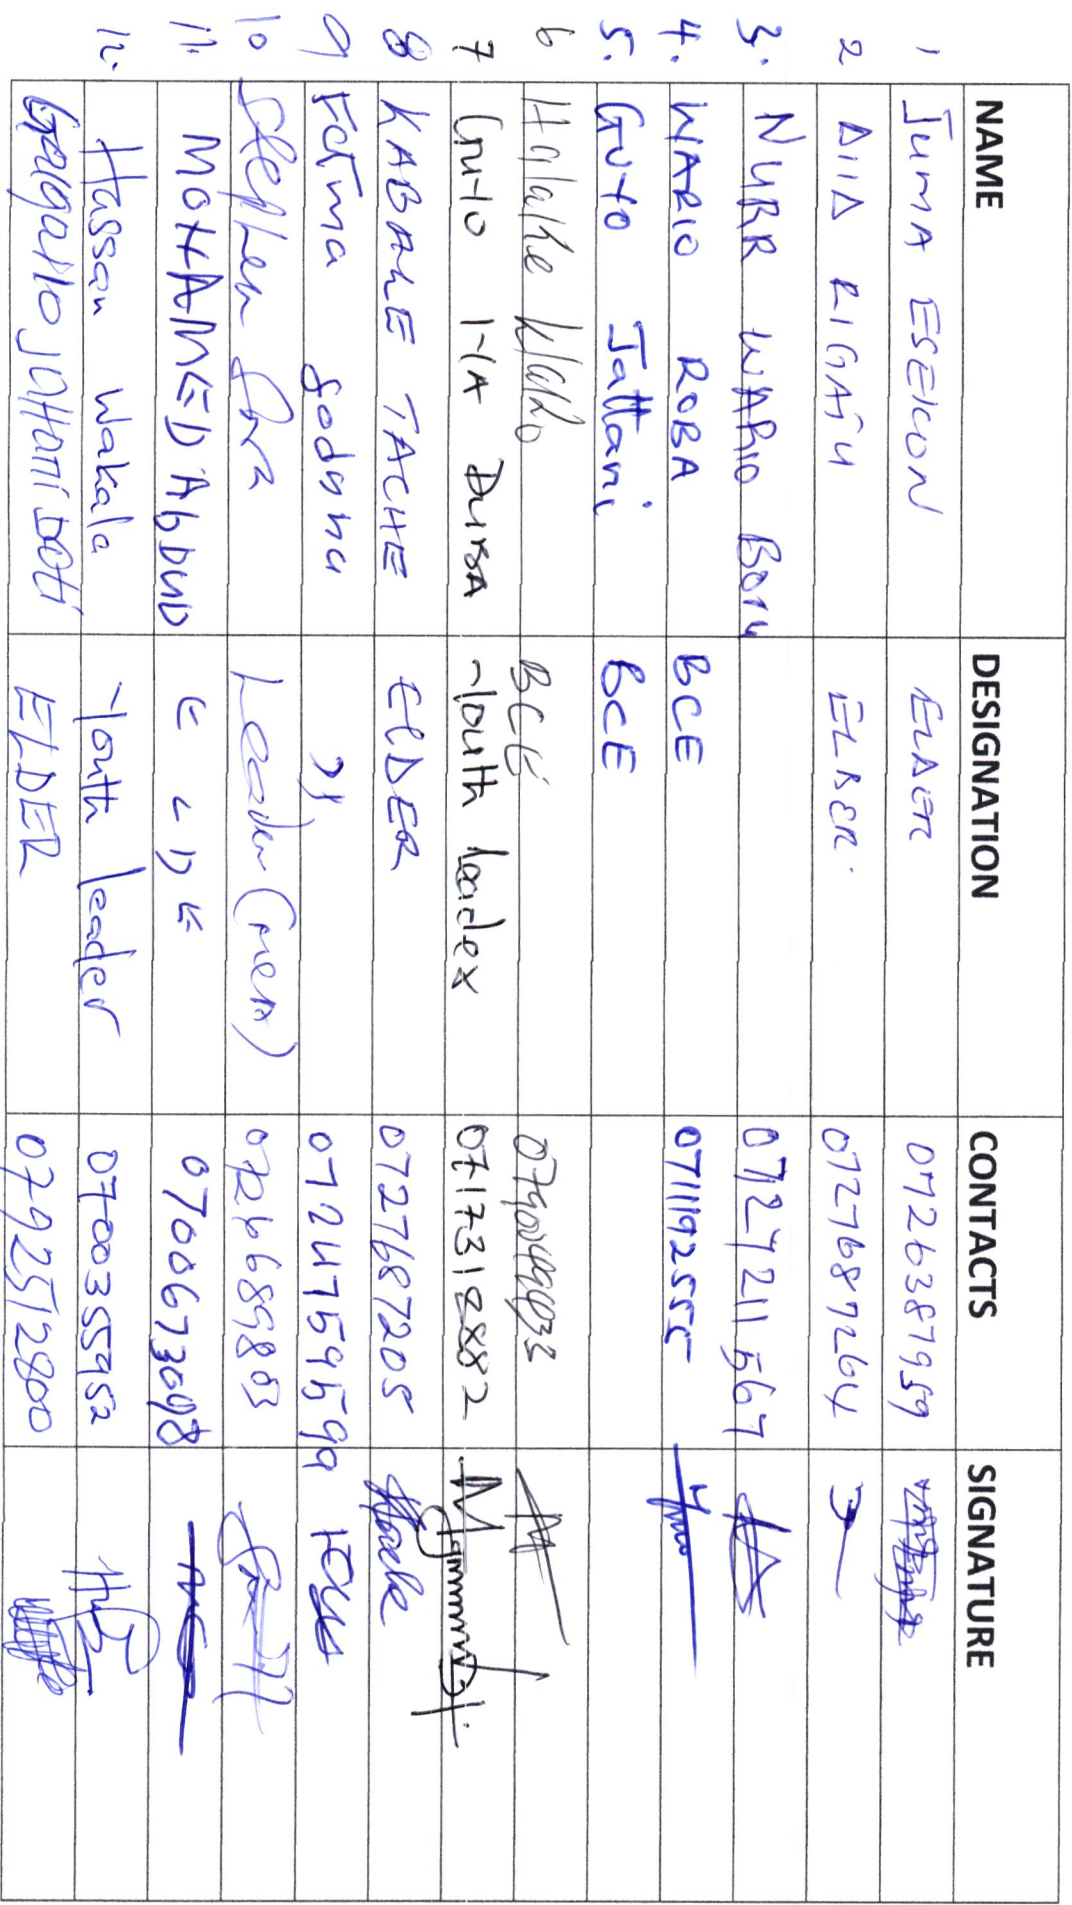 NAME DESIGNATION CONTACTS SIGNATURE
1 JUMA ESEKON ELDER 0726387959
2 DIID RIGAJU ELDER. 0727687264
3. NURR WARIO BORU 0727211567
4. WARIO ROBA BCE 0711192555
5. Guyo Jattani BCE
6 Halake Wario BCE
7 Guyo HA DUBA Youth leader 0717310882
8 KABALE TACHE ELDER 0727687205
9 Fatma Godana )) 0724759599
10 Stephen Leader (men) 0726689803
11. MOHAMED AbDUB E L D E 0700673098
12. Hassan Wakala Youth leader 0700355952
Galgallo Jattani Doti ELDER 0792512800